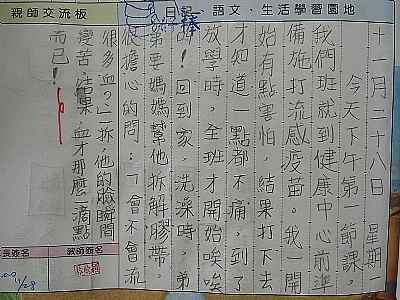 親師交流板
語文．生活學習園地
十一月二十八日 星期
今天下午第一節課，
我們班就到健康中心前準
備施打流感疫苗。我一開
始有點害怕，結果打下去
才知道一點都不痛，到了
放學時，全班才開始唉唉
叫！回到家，洗澡時，弟
弟要媽媽幫他拆解膠帶。
很擔心的問：「會不會流
很多血？」一拆，他的臉瞬間
變苦，結果，血才那麼一滴點
而已！
長簽名
教師簽名
11/28